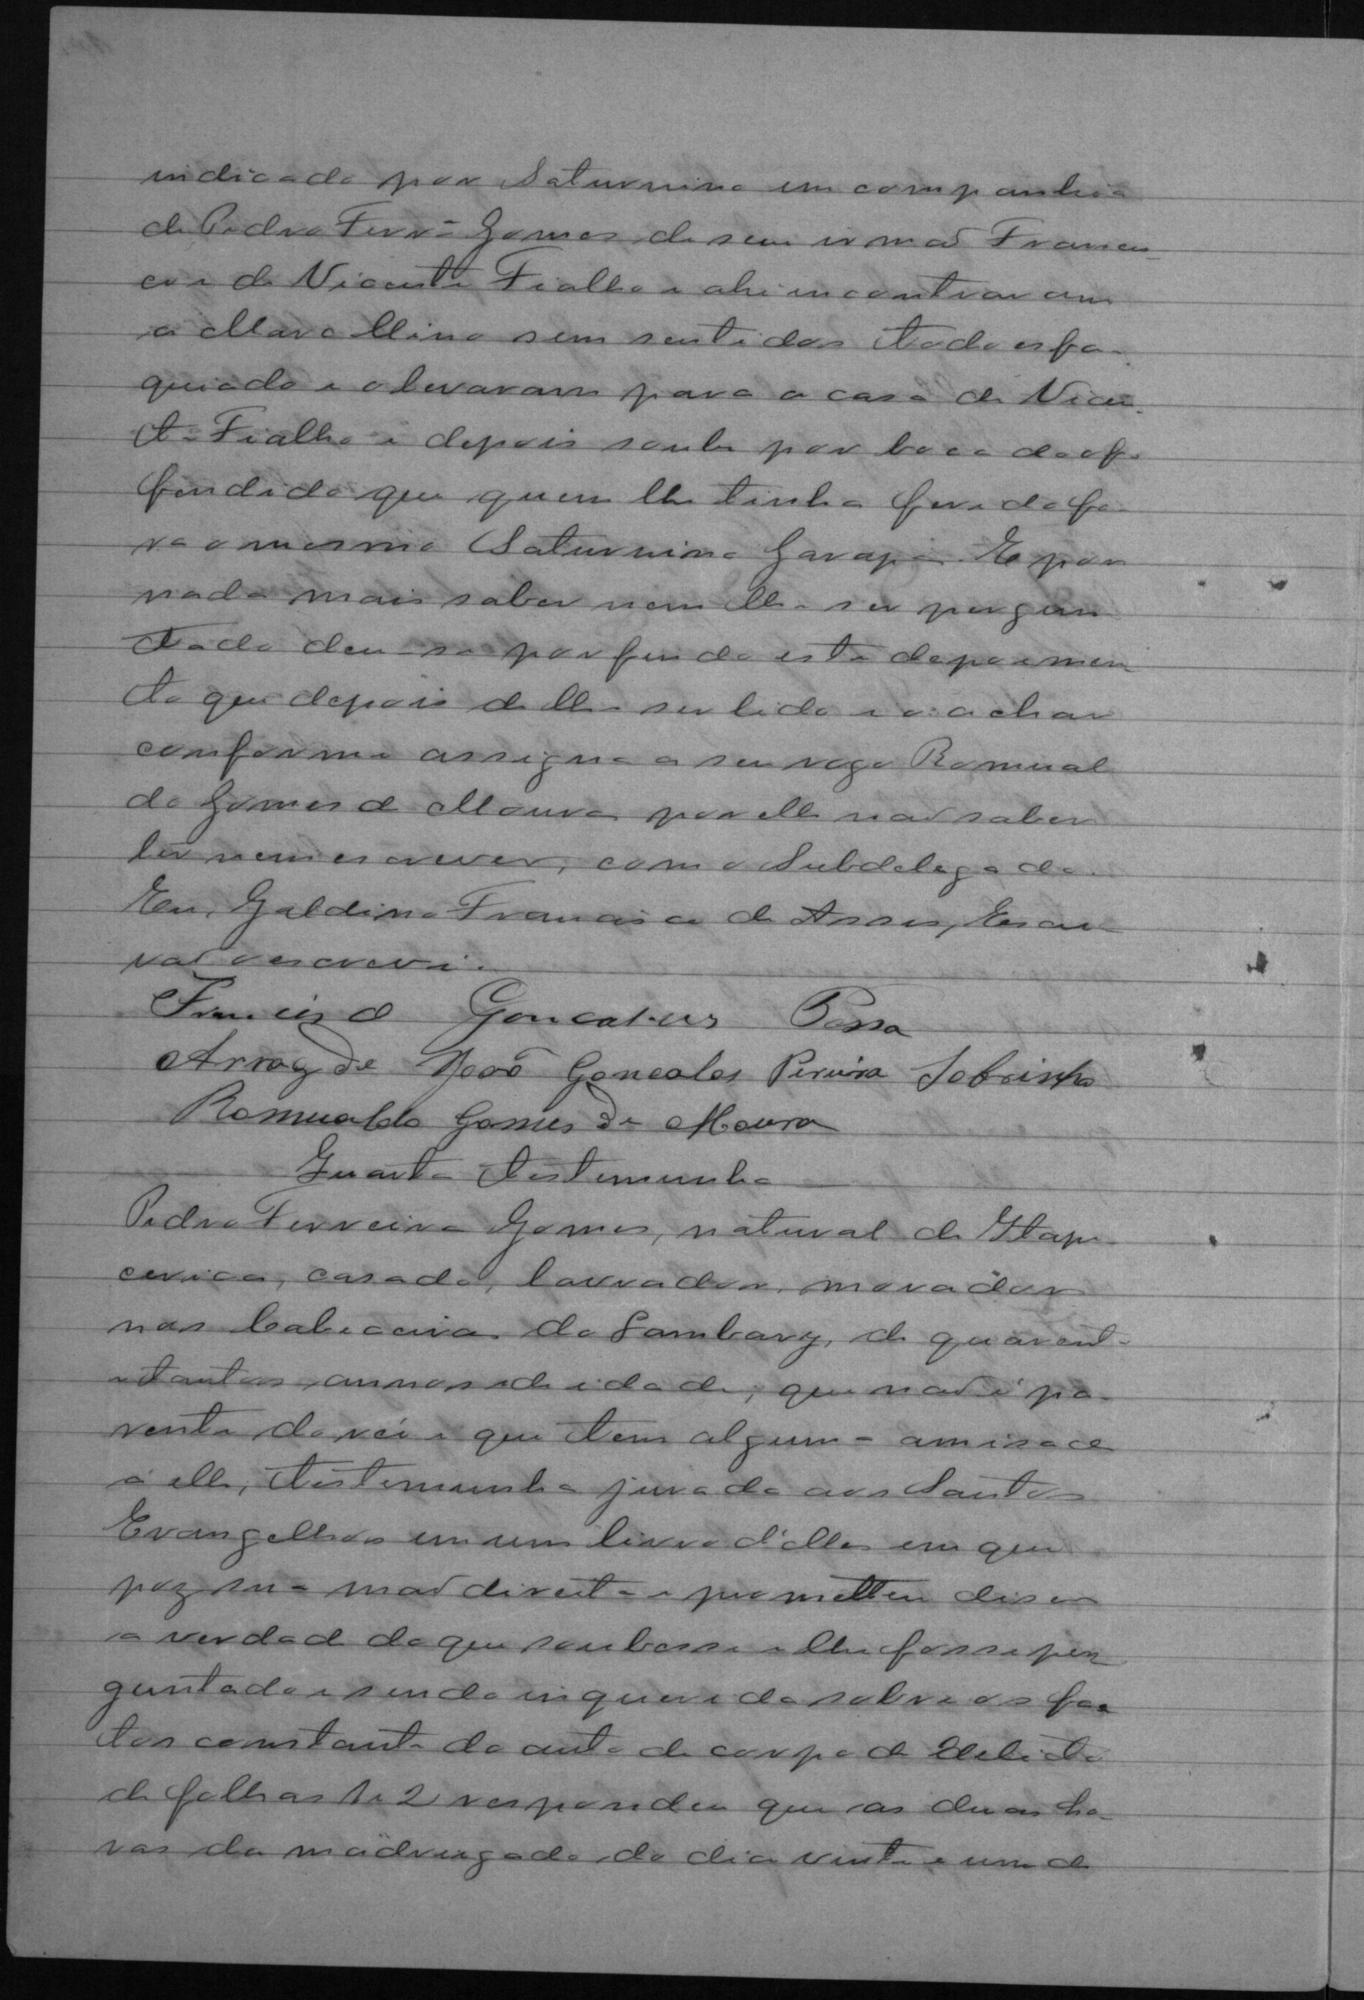 indicado por Saturnino em companhia
de Pedro Ferrª Gomes, de seu irmaõ Francis-
co e de Vicente Fialho e ahi incontraram
a Marcellino sem sentidos todo esfa-
quiado e o levaram para a casa de Vicen-
te Fialho e depois soube por boca do of-
fendido que quem lhe tinha ferido fo-
ra o mesmo Saturnino Garapa. E por
nada mais saber nem lhe ser pergun-
tado deu-se por findo este depoimen-
to que depois de lhe ser lido e o achar
conforme assigna a seu rogo Romual-
do Gomes de Moura por elle naõ saber
ler nem escrever, com o Subdelegado.
Eu, Galdino Francisco de Assis, Escri-
vaõ o escrevi.
Francisco Goncalves
Arrog de Joaõ Goncalos Pereira Sobrinho
Romualdo Gomes de Moura
Quarta testemunha
Pedro Ferreira Gomes, natural de Itape-
cerica, casado, lavrador, morador
nas Cabeceiras do Lambary, de quarent-
e tantos annos de idade, que naõ é pa-
rente do réo e que tem alguma amisade
a elle, testemunha jurada aos Santos
Evangelhos em um livro d'elles em que
poz sua maõ direita e prometteu diser
a verdade do que soubesse e lhe fosse per-
guntado e sendo inquerido sobre os fac-
tos constante do auto de corpo de delicto
de folhas 1 e 2 respondeu que as duas ho-
ras da madrugada do dia vinte e um de